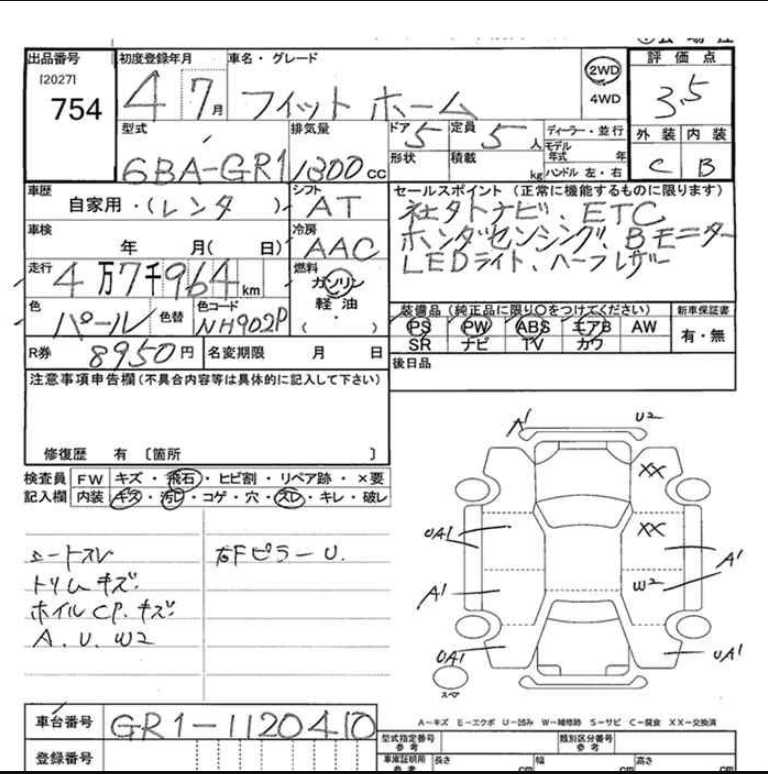 出品番号 初度登録年月 車名・グレード 2WD 評価点
[2027]
754 4 7月 フィット ホーム 4WD 3.5
型式 排気量 ドア 5 定員 5人 ディーラー・並行 外装 内装
モデル年式 年
6BA-GR1 1300cc 形状 積載 kg ハンドル 左・右 C B
車歴 自家用・(レンタ) シフト AT セールスポイント (正常に機能するものに限ります)
社外ナビ、ETC
車検 年 月( 日) 冷房 AAC ホンダセンシング、Bモニター
LEDライト、ハーフレザー
走行 4万7千964km 燃料 ガソリン
軽油
・
( )
装備品(純正品に限り○をつけてください) 新車保証書
色 パール 色替 色コード NH902P PS PW ABS エアB AW 有・無
SR ナビ TV カワ
R券 8950円 名変期限 月 日 後日品
注意事項申告欄(不具合内容等は具体的に記入して下さい)
修復歴 有 〔箇所 〕
検査員 FW キズ・飛石・ヒビ割・リペア跡・×要
記入欄 内装 キズ・汚レ・コゲ・穴・スレ・キレ・破レ
シートスレ 右FピラーU.
トリムキズ.
ホイルCP.キズ.
A.U.W2
A1 U2
XX
UA1 XX A1
A1 W2
UA1 UA1
スペア
A−キズ E−エクボ U−凹み W−補修跡 S−サビ C−腐食 XX−交換済
車台番号 GR1-1120410
型式指定番号 参考 類別区分番号 参考
登録番号 車庫証明用 参考 長さ cm 幅 cm 高さ cm